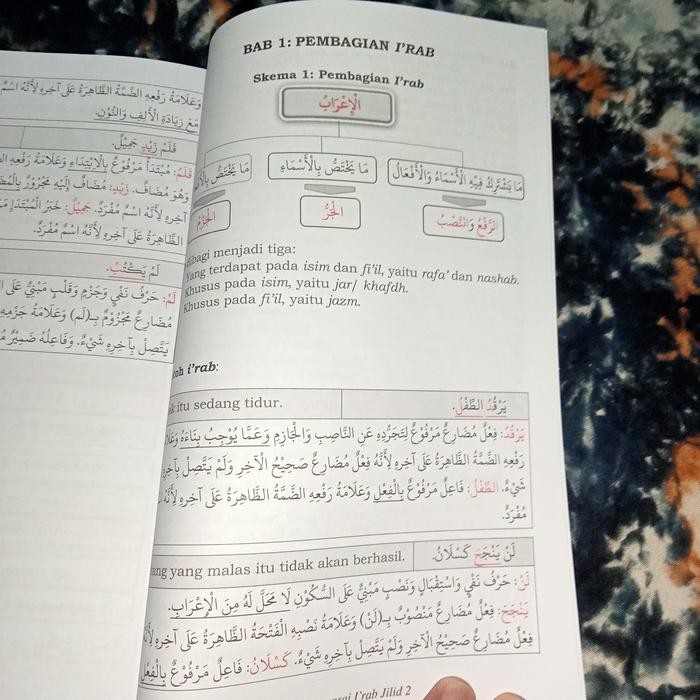 وَعَلَامَةُ رَفْعِهِ الضَّمَّةُ الظَّاهِرَةُ عَلَى آخِرِهِ لِأَنَّهُ اسْمٌ
مَعَ زِيَادَةِ الْأَلِفِ وَالنُّوْنِ.
قَلَمُ زَيْدٍ جَمِيْلٌ.
قَلَمُ: مُبْتَدَأٌ مَرْفُوْعٌ بِالْاِبْتِدَاءِ وَعَلَامَةُ رَفْعِهِ
وَهُوَ مُضَافٌ. زَيْدٍ: مُضَافٌ إِلَيْهِ مَجْرُوْرٌ
آخِرِهِ لِأَنَّهُ اسْمٌ مُفْرَدٌ. جَمِيْلٌ: خَبَرُ الْمُبْتَدَإِ
الظَّاهِرَةُ عَلَى آخِرِهِ لِأَنَّهُ اسْمٌ مُفْرَدٌ.
لَمْ يَكْتُبْ.
لَمْ: حَرْفُ نَفْيٍ وَجَزْمٍ وَقَلْبٍ مَبْنِيٌّ عَلَى
مُضَارِعٌ مَجْزُوْمٌ بِـ(لَمْ) وَعَلَامَةُ جَزْمِهِ
يَتَّصِلْ بِآخِرِهِ شَيْءٌ. وَفَاعِلُهُ ضَمِيْرٌ
BAB 1: PEMBAGIAN I'RAB
Skema 1: Pembagian I'rab
الْإِعْرَابُ
مَا يَشْتَرِكُ فِيْهِ الْأَسْمَاءُ وَالْأَفْعَالُ
مَا يَخْتَصُّ بِالْأَسْمَاءِ
مَا يَخْتَصُّ
الرَّفْعُ وَالنَّصْبُ
الْجَرُّ
الْجَزْمُ
dibagi menjadi tiga:
Yang terdapat pada isim dan fi'il, yaitu rafa' dan nashab.
Khusus pada isim, yaitu jar/ khafdh.
Khusus pada fi'il, yaitu jazm.
i'rab:
يَرْقُدُ الطِّفْلُ.
itu sedang tidur.
يَرْقُدُ: فِعْلٌ مُضَارِعٌ مَرْفُوْعٌ لِتَجَرُّدِهِ عَنِ النَّاصِبِ وَالْجَازِمِ وَعَمَّا يُوْجِبُ بِنَاءَهُ
رَفْعِهِ الضَّمَّةُ الظَّاهِرَةُ عَلَى آخِرِهِ لِأَنَّهُ فِعْلٌ مُضَارِعٌ صَحِيْحُ الْآخِرِ وَلَمْ يَتَّصِلْ بِآخِرِهِ
شَيْءٌ. الطِّفْلُ: فَاعِلٌ مَرْفُوْعٌ بِالْفِعْلِ وَعَلَامَةُ رَفْعِهِ الضَّمَّةُ الظَّاهِرَةُ عَلَى آخِرِهِ لِأَنَّهُ
مُفْرَدٌ.
لَنْ يَنْجَحَ كَسْلَانُ.
yang malas itu tidak akan berhasil.
لَنْ: حَرْفُ نَفْيٍ وَاسْتِقْبَالٍ وَنَصْبٍ مَبْنِيٌّ عَلَى السُّكُوْنِ لَا مَحَلَّ لَهُ مِنَ الْإِعْرَابِ.
يَنْجَحَ: فِعْلٌ مُضَارِعٌ مَنْصُوْبٌ بِـ(لَنْ) وَعَلَامَةُ نَصْبِهِ الْفَتْحَةُ الظَّاهِرَةُ عَلَى آخِرِهِ لِأَنَّهُ
فِعْلٌ مُضَارِعٌ صَحِيْحُ الْآخِرِ وَلَمْ يَتَّصِلْ بِآخِرِهِ شَيْءٌ. كَسْلَانُ: فَاعِلٌ مَرْفُوْعٌ بِالْفِعْلِ
I'rab Jilid 2